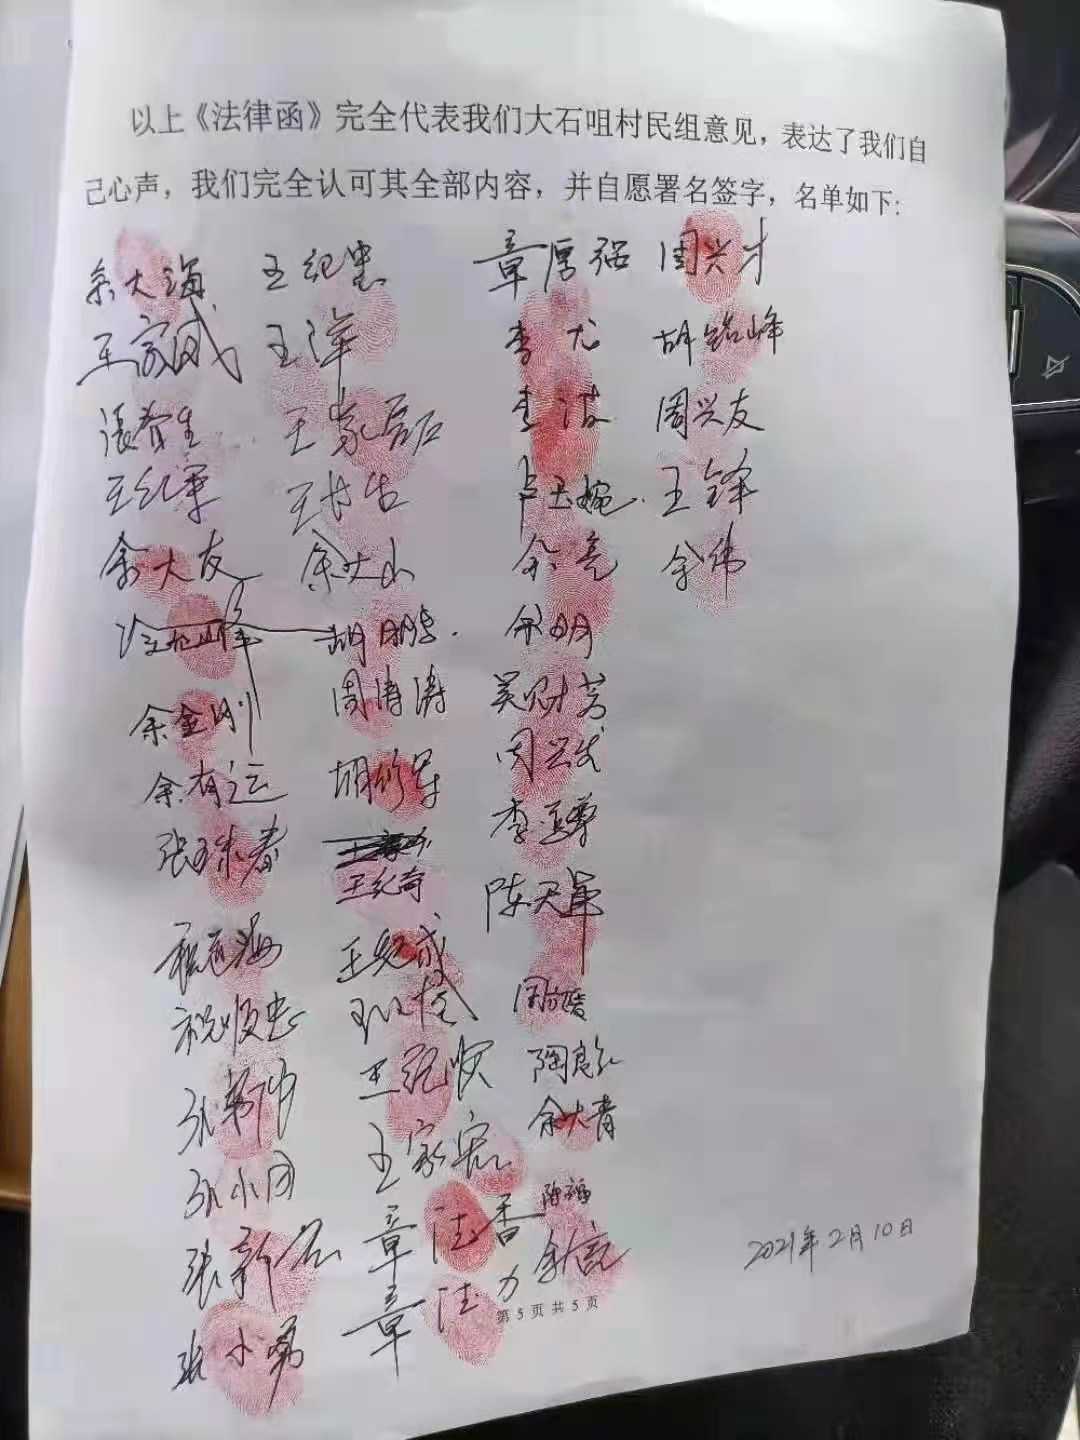 以上《法律函》完全代表我们大石咀村民组意见，表达了我们自
己心声，我们完全认可其全部内容，并自愿署名签字，名单如下:
余大海 王纪忠 章厚强 周兴才
王家成 王洋 李尤 胡铭峰
张贵生 王家磊 李波 周兴友
王纪军 卢玉婉 王锋
余大友 余大山 余亮 余伟
胡鹏 余明
余金刚 周涛涛 吴财芳
余有运 胡修军 周兴发
张玉春 李亚军
王纪奇 陈天军
程道海 王纪成
祝顺忠
王纪顺 陶良红
张小团 王家宏 余大青
张新宏 章法香 陶福
张小勇 章法力 余信
2021年2月10日
第 5 页 共 5 页